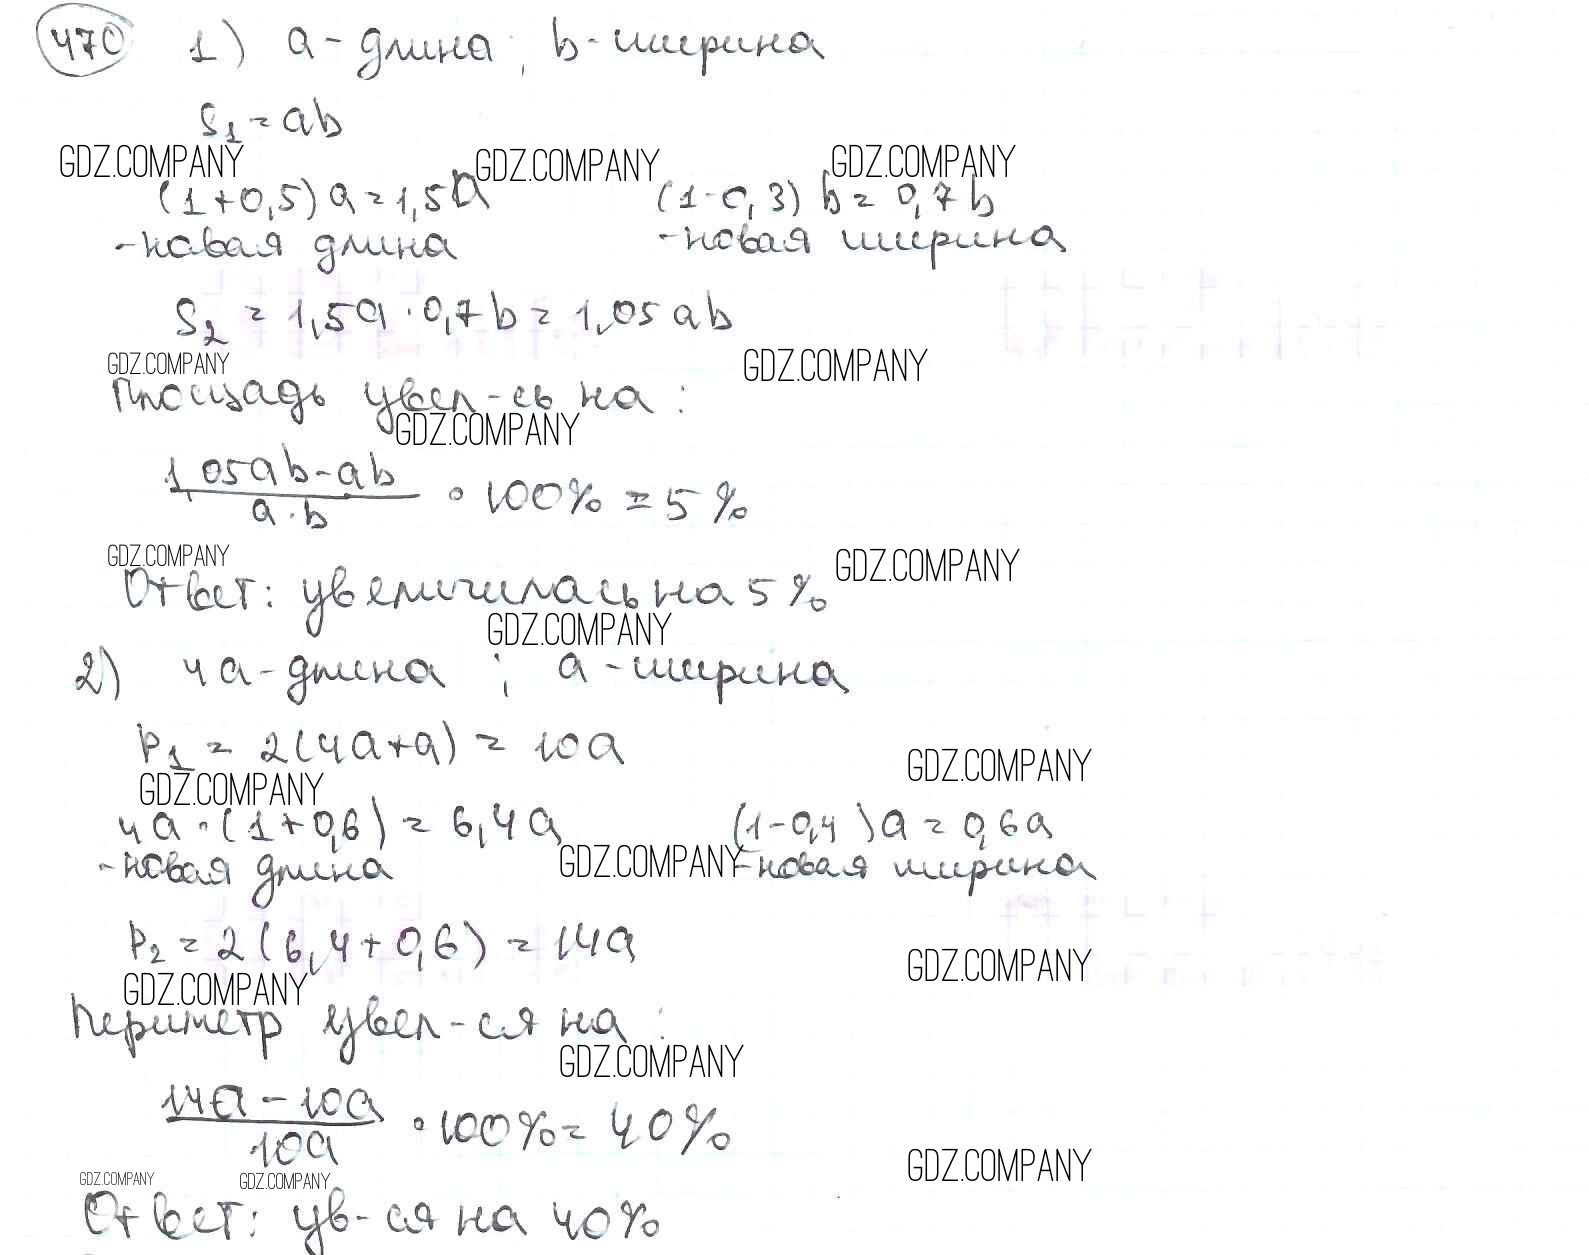 470 1) a - длина; b - ширина
S₁ = ab
GDZ.COMPANY GDZ.COMPANY GDZ.COMPANY
(1+0,5)a = 1,5a (1-0,3)b = 0,7b
- новая длина - новая ширина
S₂ = 1,5a · 0,7b = 1,05ab
GDZ.COMPANY GDZ.COMPANY
Площадь увел-сь на:
GDZ.COMPANY
1,05ab - ab
a · b
· 100% = 5%
GDZ.COMPANY GDZ.COMPANY
Ответ: увеличилась на 5%
GDZ.COMPANY
2) 4a - длина; a - ширина
P₁ = 2(4a+a) = 10a
GDZ.COMPANY GDZ.COMPANY
4a · (1+0,6) = 6,4a (1-0,4)a = 0,6a
- новая длина GDZ.COMPANY - новая ширина
P₂ = 2(6,4+0,6) = 14a
GDZ.COMPANY GDZ.COMPANY
Периметр увел-ся на:
GDZ.COMPANY
14a - 10a
10a
· 100% = 40%
GDZ.COMPANY GDZ.COMPANY GDZ.COMPANY
Ответ: ув-ся на 40%